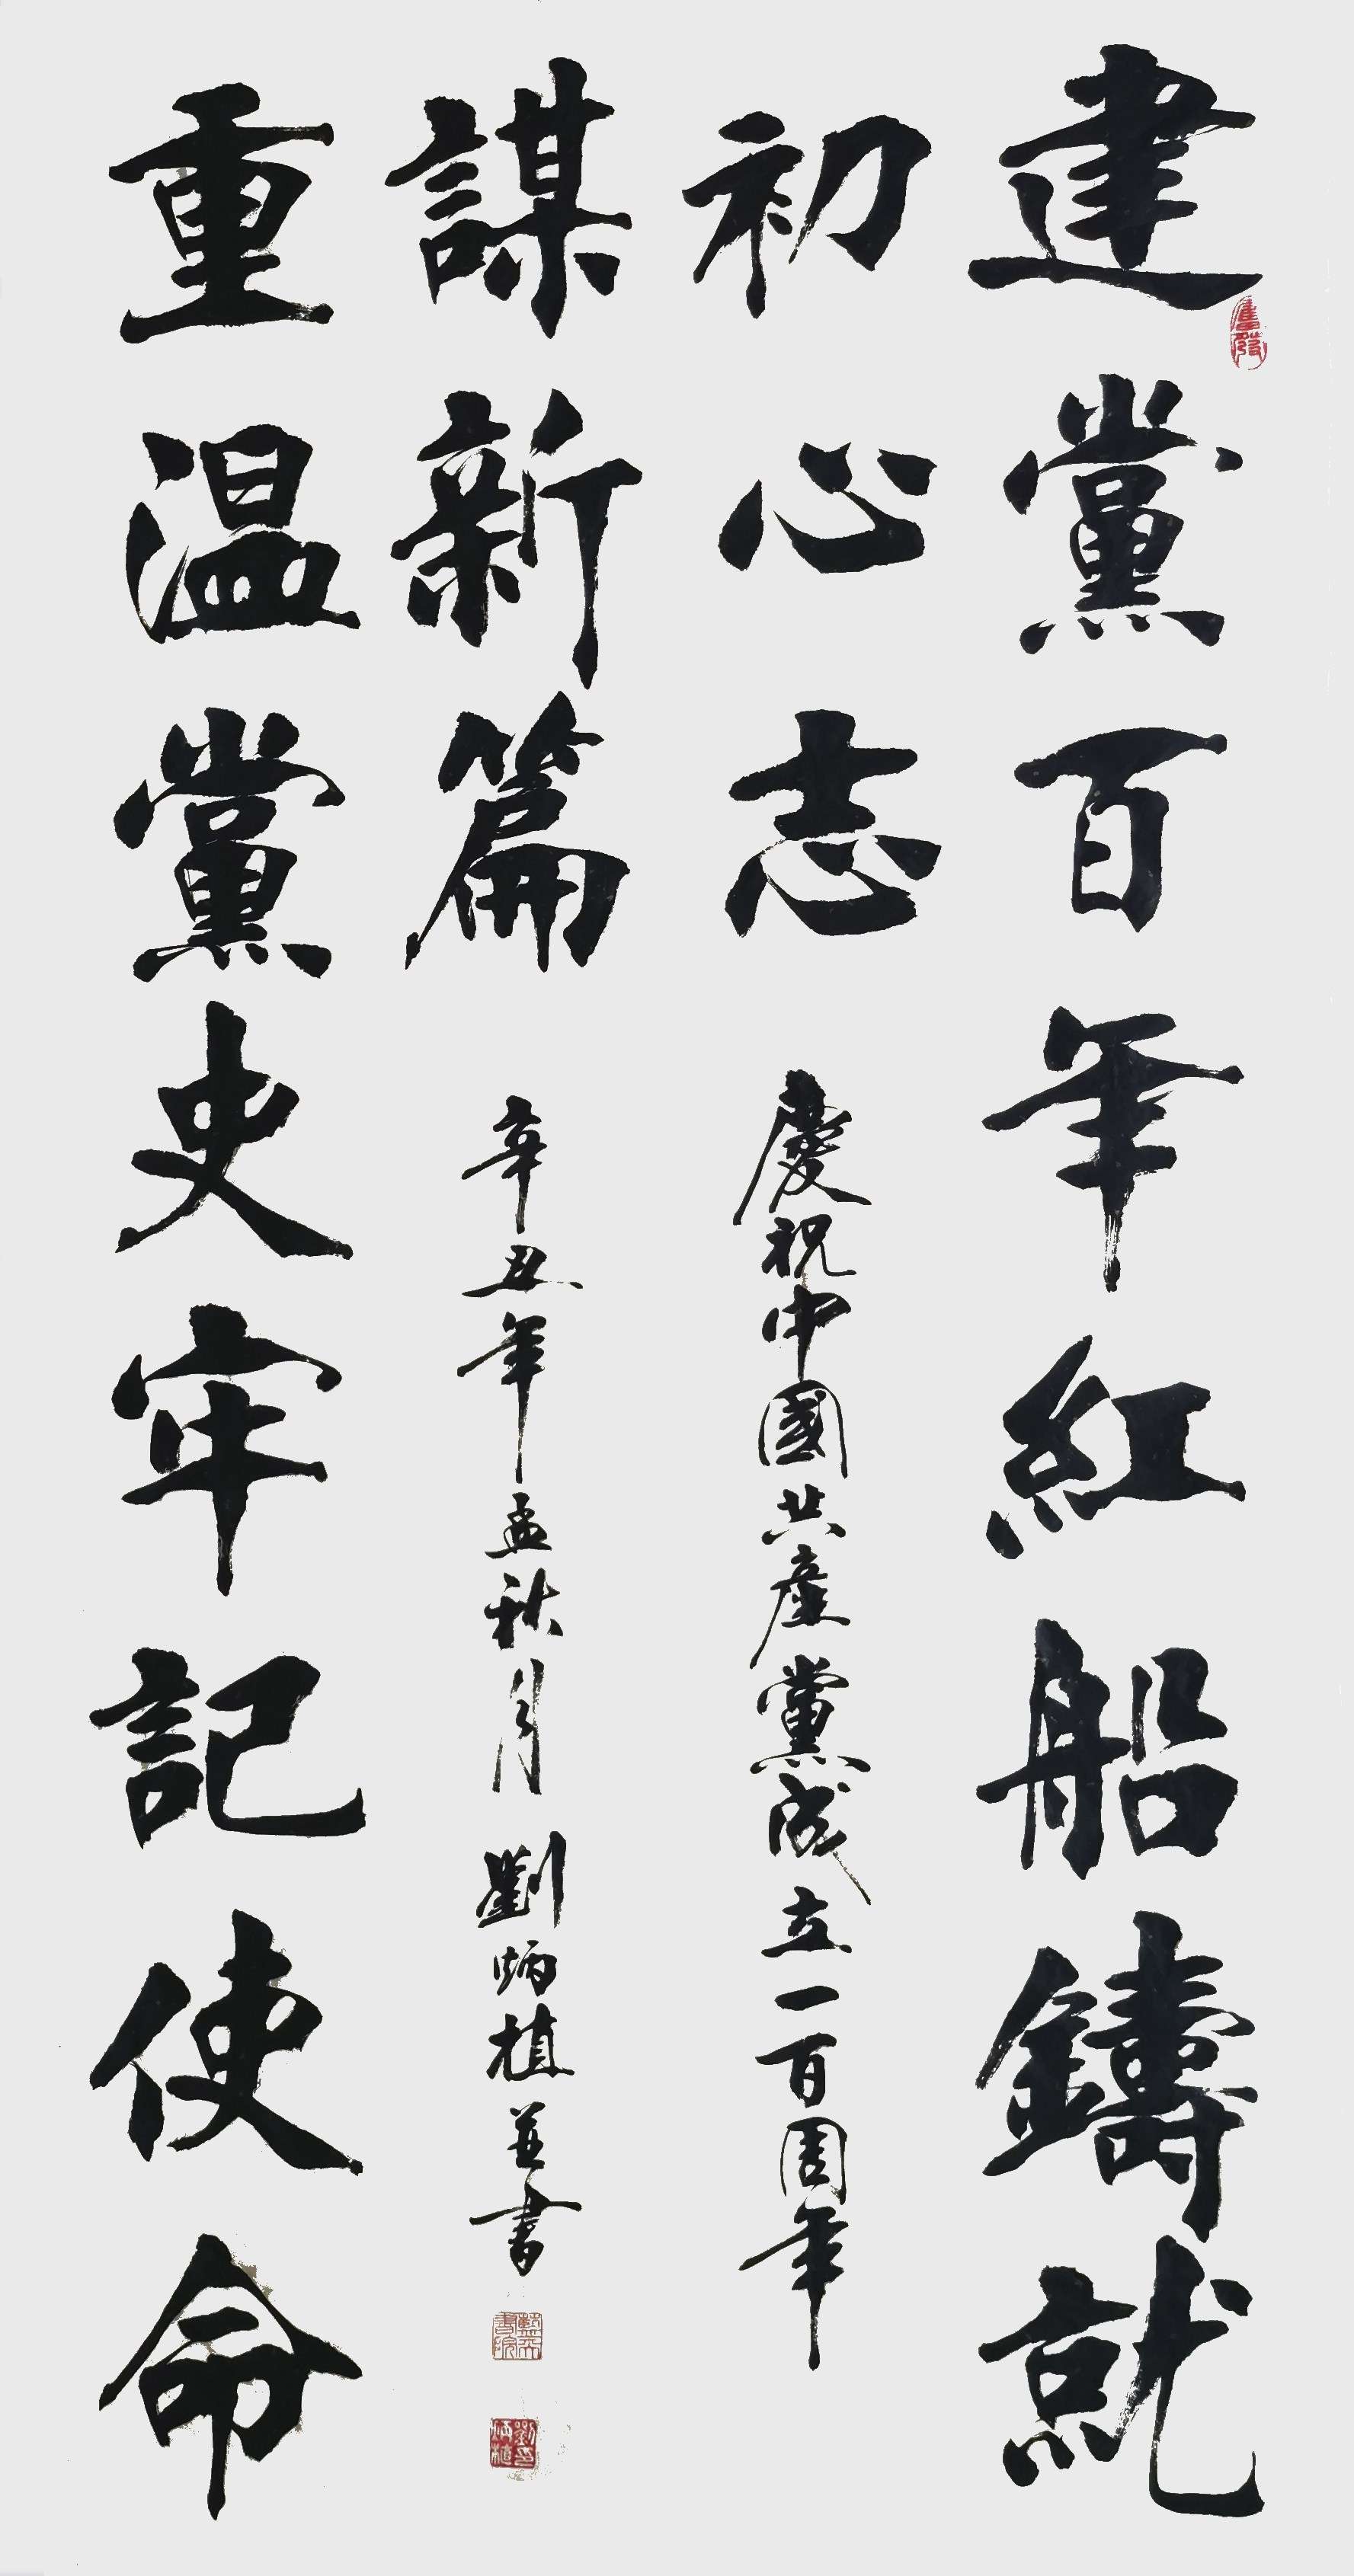 建黨百年紅船鑄就
初心志
重温黨史牢記使命
謀新篇
慶祝中國共產黨成立一百周年
辛丑年孟秋月 劉炳植並書
劉印炳植